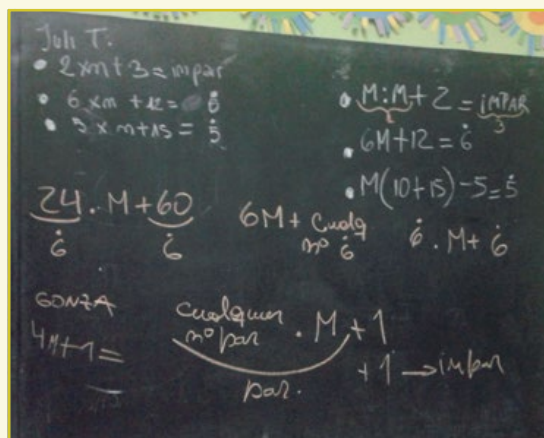 Juli T.
• 2 x m + 3 = impar
• 6 x m + 12 = 6̇
• 5 x m + 15 = 5̇
• M : M + 2 = iMPAR
3
• 6M + 12 = 6̇
• M(10 + 15) - 5 = 5̇
24 . M + 60
6̇ 6̇
6M + Cualq
nº 6̇
6̇ . M + 6̇
GONZA
4M + 1 =
cualquier
nº par . M + 1
par.
+ 1 → impar